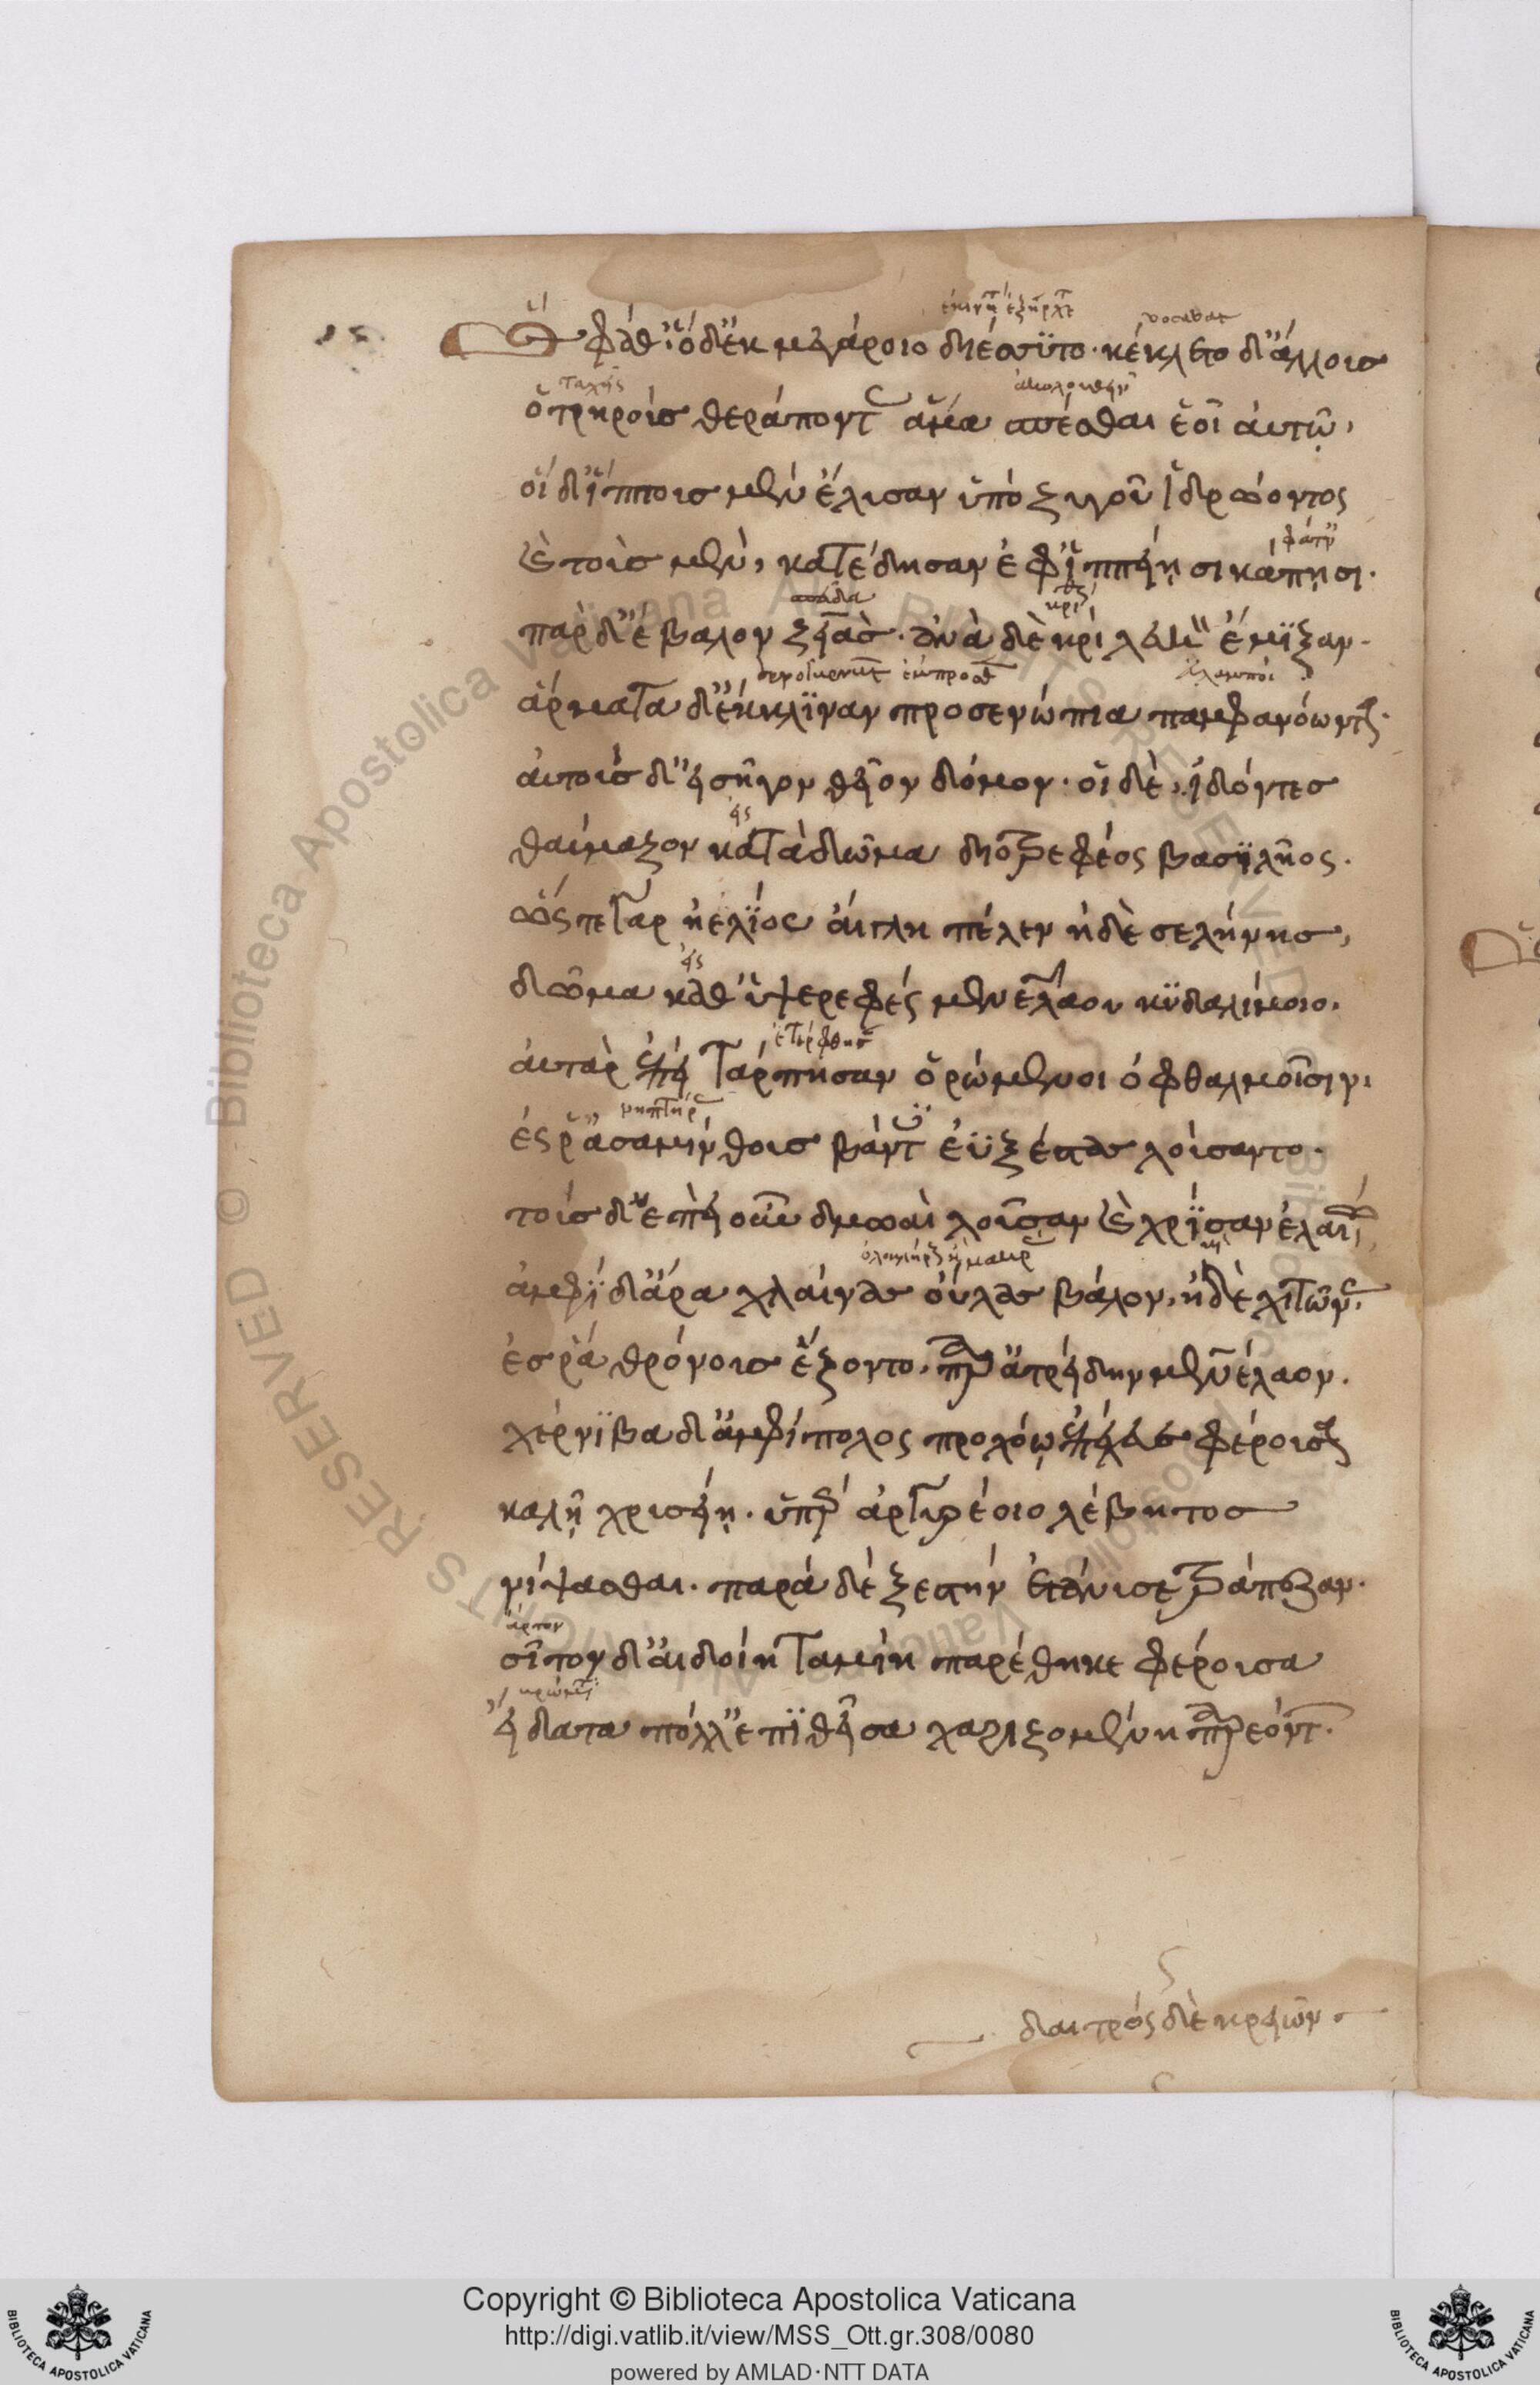 ὣς φάθ' ὁ δ' ἐκ μεγάροιο διέσσυτο· κέκλετο δ' ἄλλους
ταχεῖς
ὀτρηροὺς θεράποντας ἅμα σπέσθαι ἑοῖ αὐτῷ,
οἱ δ' ἵππους μὲν ἔλυσαν ὑπὸ ζυγοῦ ἱδρώοντας
καὶ τοὺς μὲν, κατέδησαν ἐφ' ἱππείῃσι κάπῃσι·
παρ δ' ἔβαλον ζειάς· ἀνὰ δὲ κρῖ λευκ' ἔμιξαν·
ἅρματα δ' ἔκλιναν προς ενώπια παμφανόωντα·
αὐτοὺς δ' εἰσῆγον θεῖον δόμον· οἱ δὲ, ἰδόντες
εἰς
θαύμαζον κατὰ δῶμα διοτρεφέος βασιλῆος·
ὥς περ γαρ ἠελίου αἴγλη πέλεν ἠδὲ σελήνης,
εἰς
δῶμα καθ' ὑψερεφές μενελάου κυδαλίμοιο·
αὐτὰρ ἐπεὶ τάρπησαν ὁρώμενοι ὀφθαλμοῖσιν,
ἔς ῥ' ἀσαμίνθους βάντες ἐϋξέστας λούσαντο·
τοὺς δ' ἐπεὶ οὖν δμωαὶ λοῦσαν καὶ χρῖσαν ἐλαίῳ
ἀμφὶ δ' ἄρα χλαίνας οὔλας βάλον, ἠδὲ χιτῶνας
ἔς ῥα θρόνους ἕζοντο, παρ' ἀτρείδην μενέλαον·
χέρνιβα δ' ἀμφίπολος προχόῳ ἐπέχευε φέρουσα
καλῇ χρυσείῃ· ὑπὲρ ἀργυρέοιο λέβητος
νίψασθαι· παρὰ δὲ ξεστὴν ἐτάνυσε τράπεζαν·
ἄρτον
σῖτον δ' αἰδοίη ταμίη παρέθηκε φέρουσα
εἴδατα πόλλ' ἐπιθεῖσα χαριζομένη παρεόντων·
δαιτρός δὲ κρειῶν
Copyright © Biblioteca Apostolica Vaticana
http://digi.vatlib.it/view/MSS_Ott.gr.308/0080
powered by AMLAD·NTT DATA
BIBLIOTECA APOSTOLICA VATICANA
BIBLIOTECA APOSTOLICA VATICANA